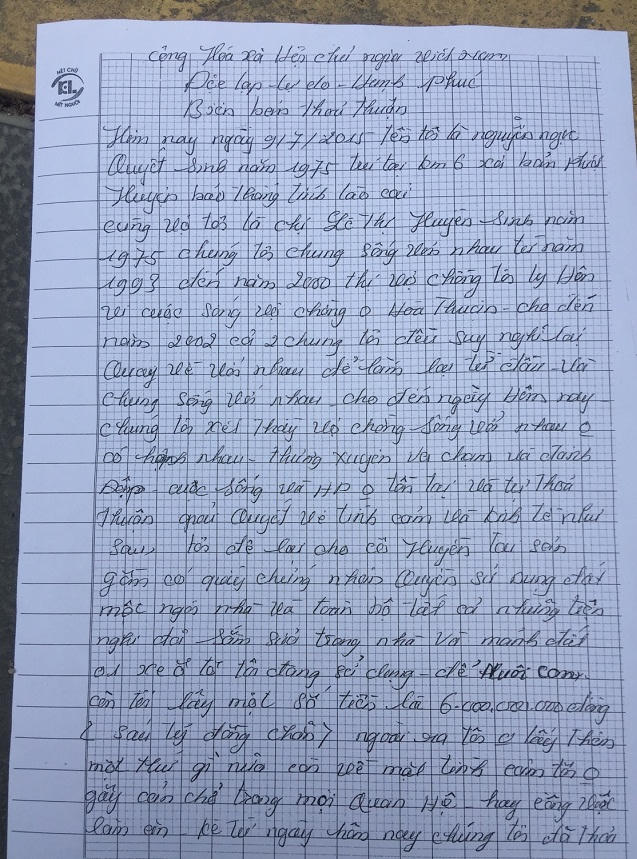 NÉT CHỮ
NẾT NGƯỜI
Cộng Hóa xà Hội chủ ngia việt nam
Độc lap - tự do - Hạnh phúc
Biên bản Thoả Thuận
Hôm nay ngày 9/7/2015 Tên tôi là nguyễn ngọc
Quyết sinh năm 1975 tru tại km6 xã bản phiệt
Huyện bảo Thắng tỉnh lào cai
cùng vợ tôi là chị Lê Thị Huyền - Sinh năm
1975 chúng tôi chung sống với nhau từ năm
1993 đến năm 2000 thì vợ chồng tôi ly Hôn
vì cuộc sống vợ chồng o Hoà Thuận - cho đến
năm 2002 cả 2 chúng tôi đều suy nghĩ lại
Quay về với nhau để làm lại từ đầu - và
chung sống với nhau cho đến ngày Hôm nay
chúng tôi xét Thấy vợ chồng sống với nhau o
có nhau - thường xuyên va chạm và đánh
Đập cuộc sống và HP o tồn tại và tự Thoả
Thuận giải Quyết về tình cảm và kinh tế như
sau, tôi để lại cho cô Huyền tài sản
gồm có quấy chứng nhận Quyền sử dụng đất
một ngôi nhà và toàn bộ tất cả những tiện
nghi đã sắm sửa trong nhà và mảnh đất
01 xe ô tô tôi đang sử dụng - để Nuôi con
còn tôi lấy một số tiền là 6.000.000.000 đồng
( sáu tỷ đồng chẵn ) ngoài ra tôi o lấy Thêm
một thứ gì nữa còn về mặt tình cảm tôi o
gây cản chở trong mọi Quan Hệ - hay công việc
làm ăn - kể từ ngày hôm nay chúng tôi đã Thoả